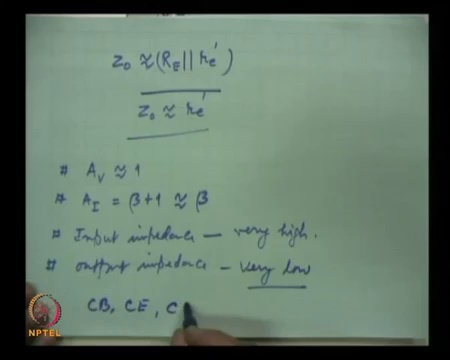 Zo ≈ (RE || re')
Zo ≈ re'
# Av ≈ 1
# AI = β+1 ≈ β
# Input impedance – very high.
# output impedance – very low
CB, CE, C
NPTEL